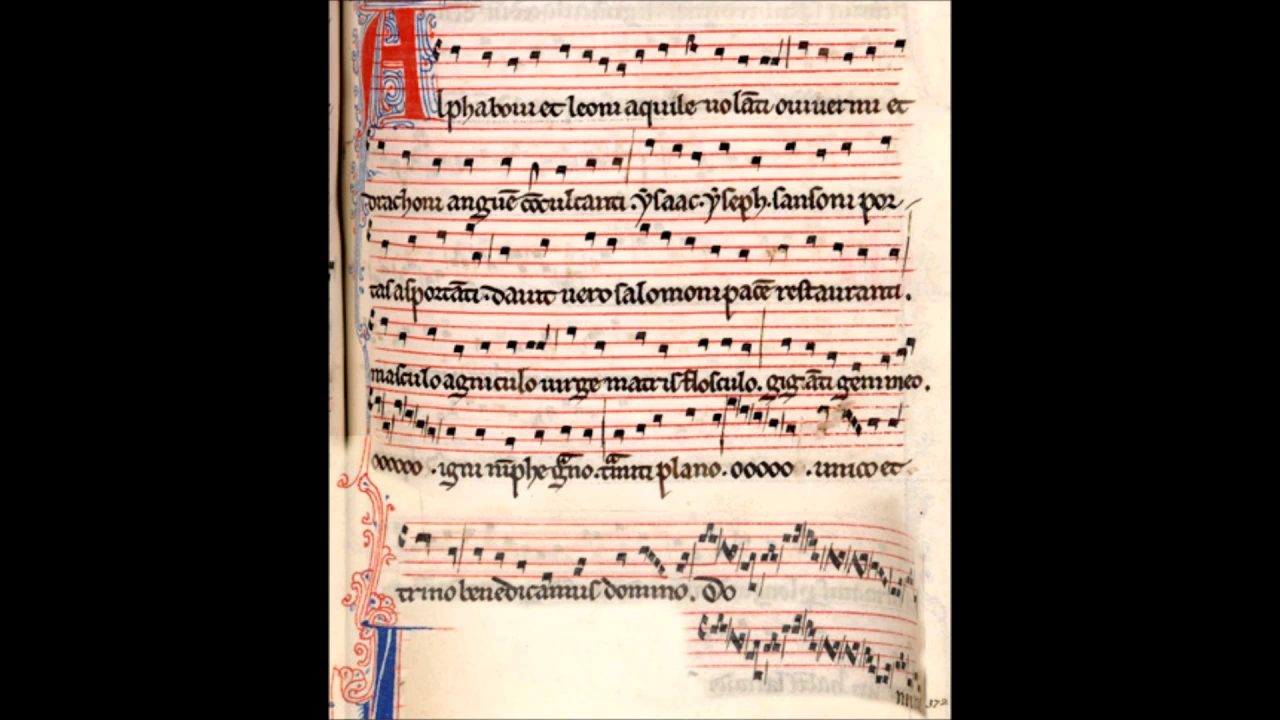 Alpha boui et leoni aquile uolāti ouiuermi et
drachoni anguē cōculcanti. ẏsaac. ẏseph. sansoni por
tas asportāti. dauit uero salomoni pacē restauranti.
masculo agniculo uirge matris flosculo. gigāti gemineo.
ooooo. igni nīphe
plano. ooooo. unico et
trino benedicamus domino. Do
372